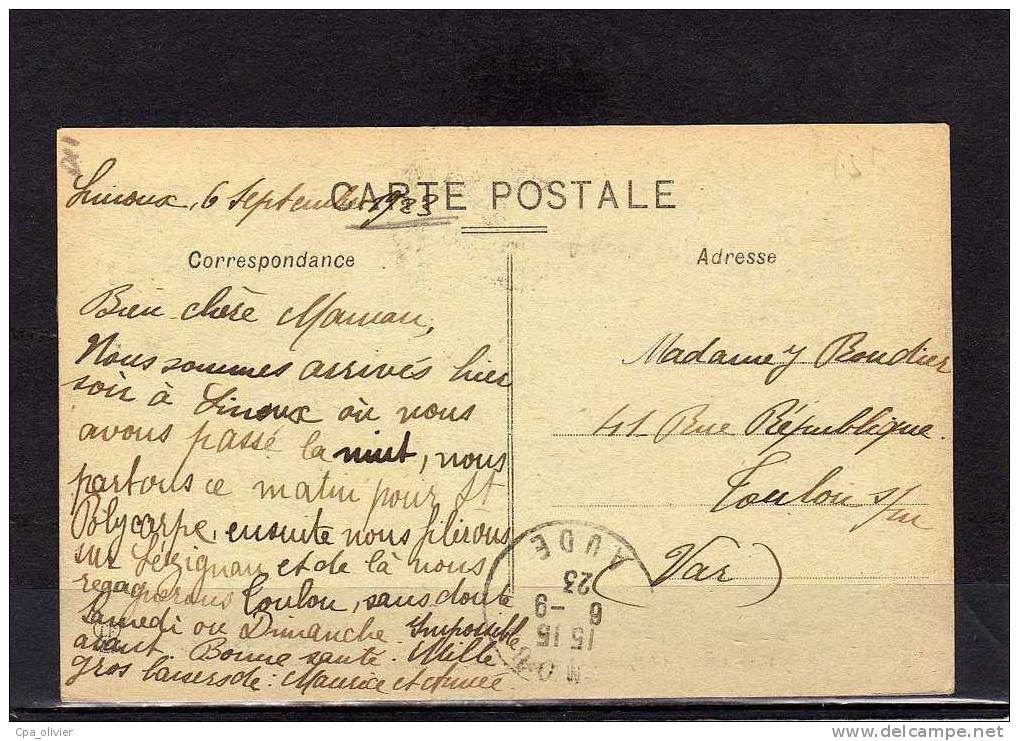 CARTE POSTALE
Limoux, 6 Septembre 1923
Correspondance
Bien chère Maman,
Nous sommes arrivés hier
soir à Limoux où nous
avons passé la nuit, nous
partons ce matin pour St
Polycarpe, ensuite nous filerons
sur Lézignan et de là nous
regagnerons Toulon, sans doute
Samedi ou Dimanche. Impossible
avant. Bonne santé. Mille
gros baisers de: Maurice et Aimée.
Adresse
Madame J Boudier
41 Rue République.
Toulon s/m
(Var)
AUDE
23
6-9
15 15
Cpa_olivier
www.delcampe.net